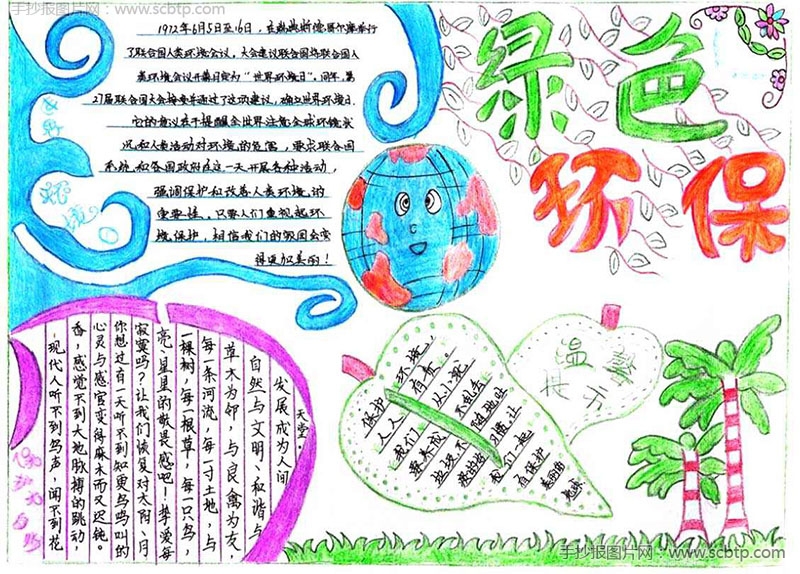 手抄报图片网：www.scbtp.com
1972年6月5日至16日，在
了联合国人类环境会议，大会建议联合国将联合国人
类环境会议开幕日定为"世界环境日"。同年，第
27届联合国大会接受并通过了这项建议，确立世界环境日
它的意义在于提醒全世界注意全球环境状
况和人类活动对环境的危害，要求联合国
系统和各国政府在这一天开展各种活动，
强调保护和改善人类环境的
重要性。只要人们重视起环
境保护，相信我们的
得更加美丽！
绿色
环保
现代人听不到鸟声，闻不到花
香，感觉不到大地脉搏的跳动，
心灵与感官变得麻木而又迟钝。
你想过有一天听不到知更鸟鸣叫的
寂寞吗？让我们恢复对太阳、月
亮、星星的敬畏感吧！挚爱每
一棵树，每一根草，每一只鸟，
每一条河流，每一寸土地，与
草木为邻，与良禽为友，
自然与文明、和谐与
发展成为人间
天堂。
温馨
提示
保护环境，
人人有责。
我们从小就
要养成不乱丢
垃圾不随地吐
痰的好习惯，让
我们一起
保护
手抄报图片网：www.scbtp.com